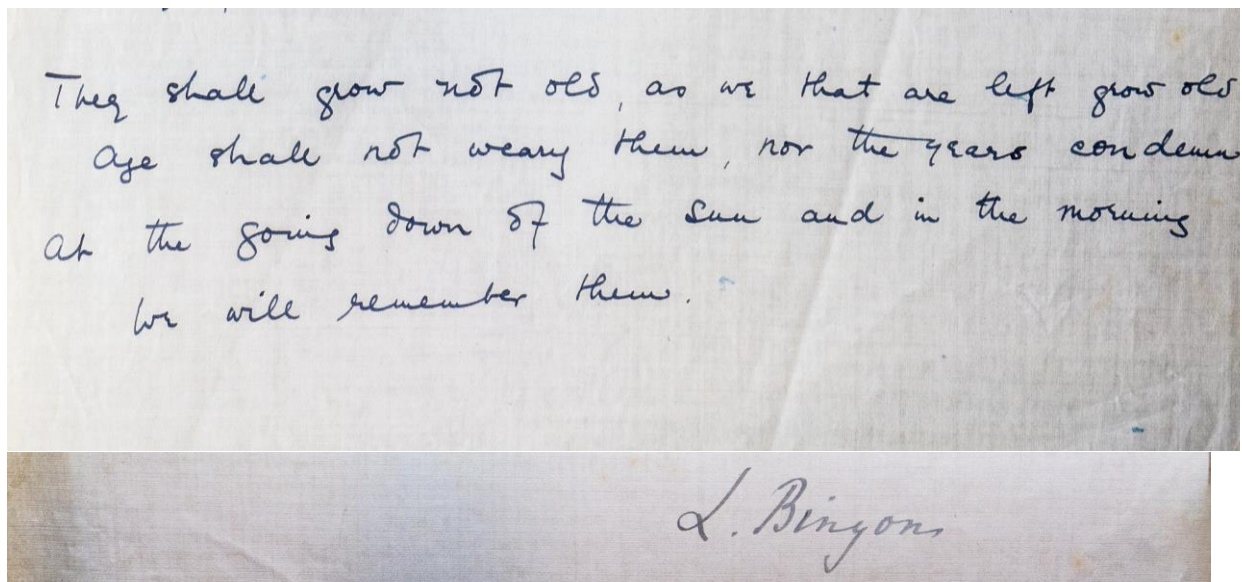 They shall grow not old, as we that are left grow old
Age shall not weary them, nor the years condemn
At the going down of the sun and in the morning
We will remember them.
L. Binyon